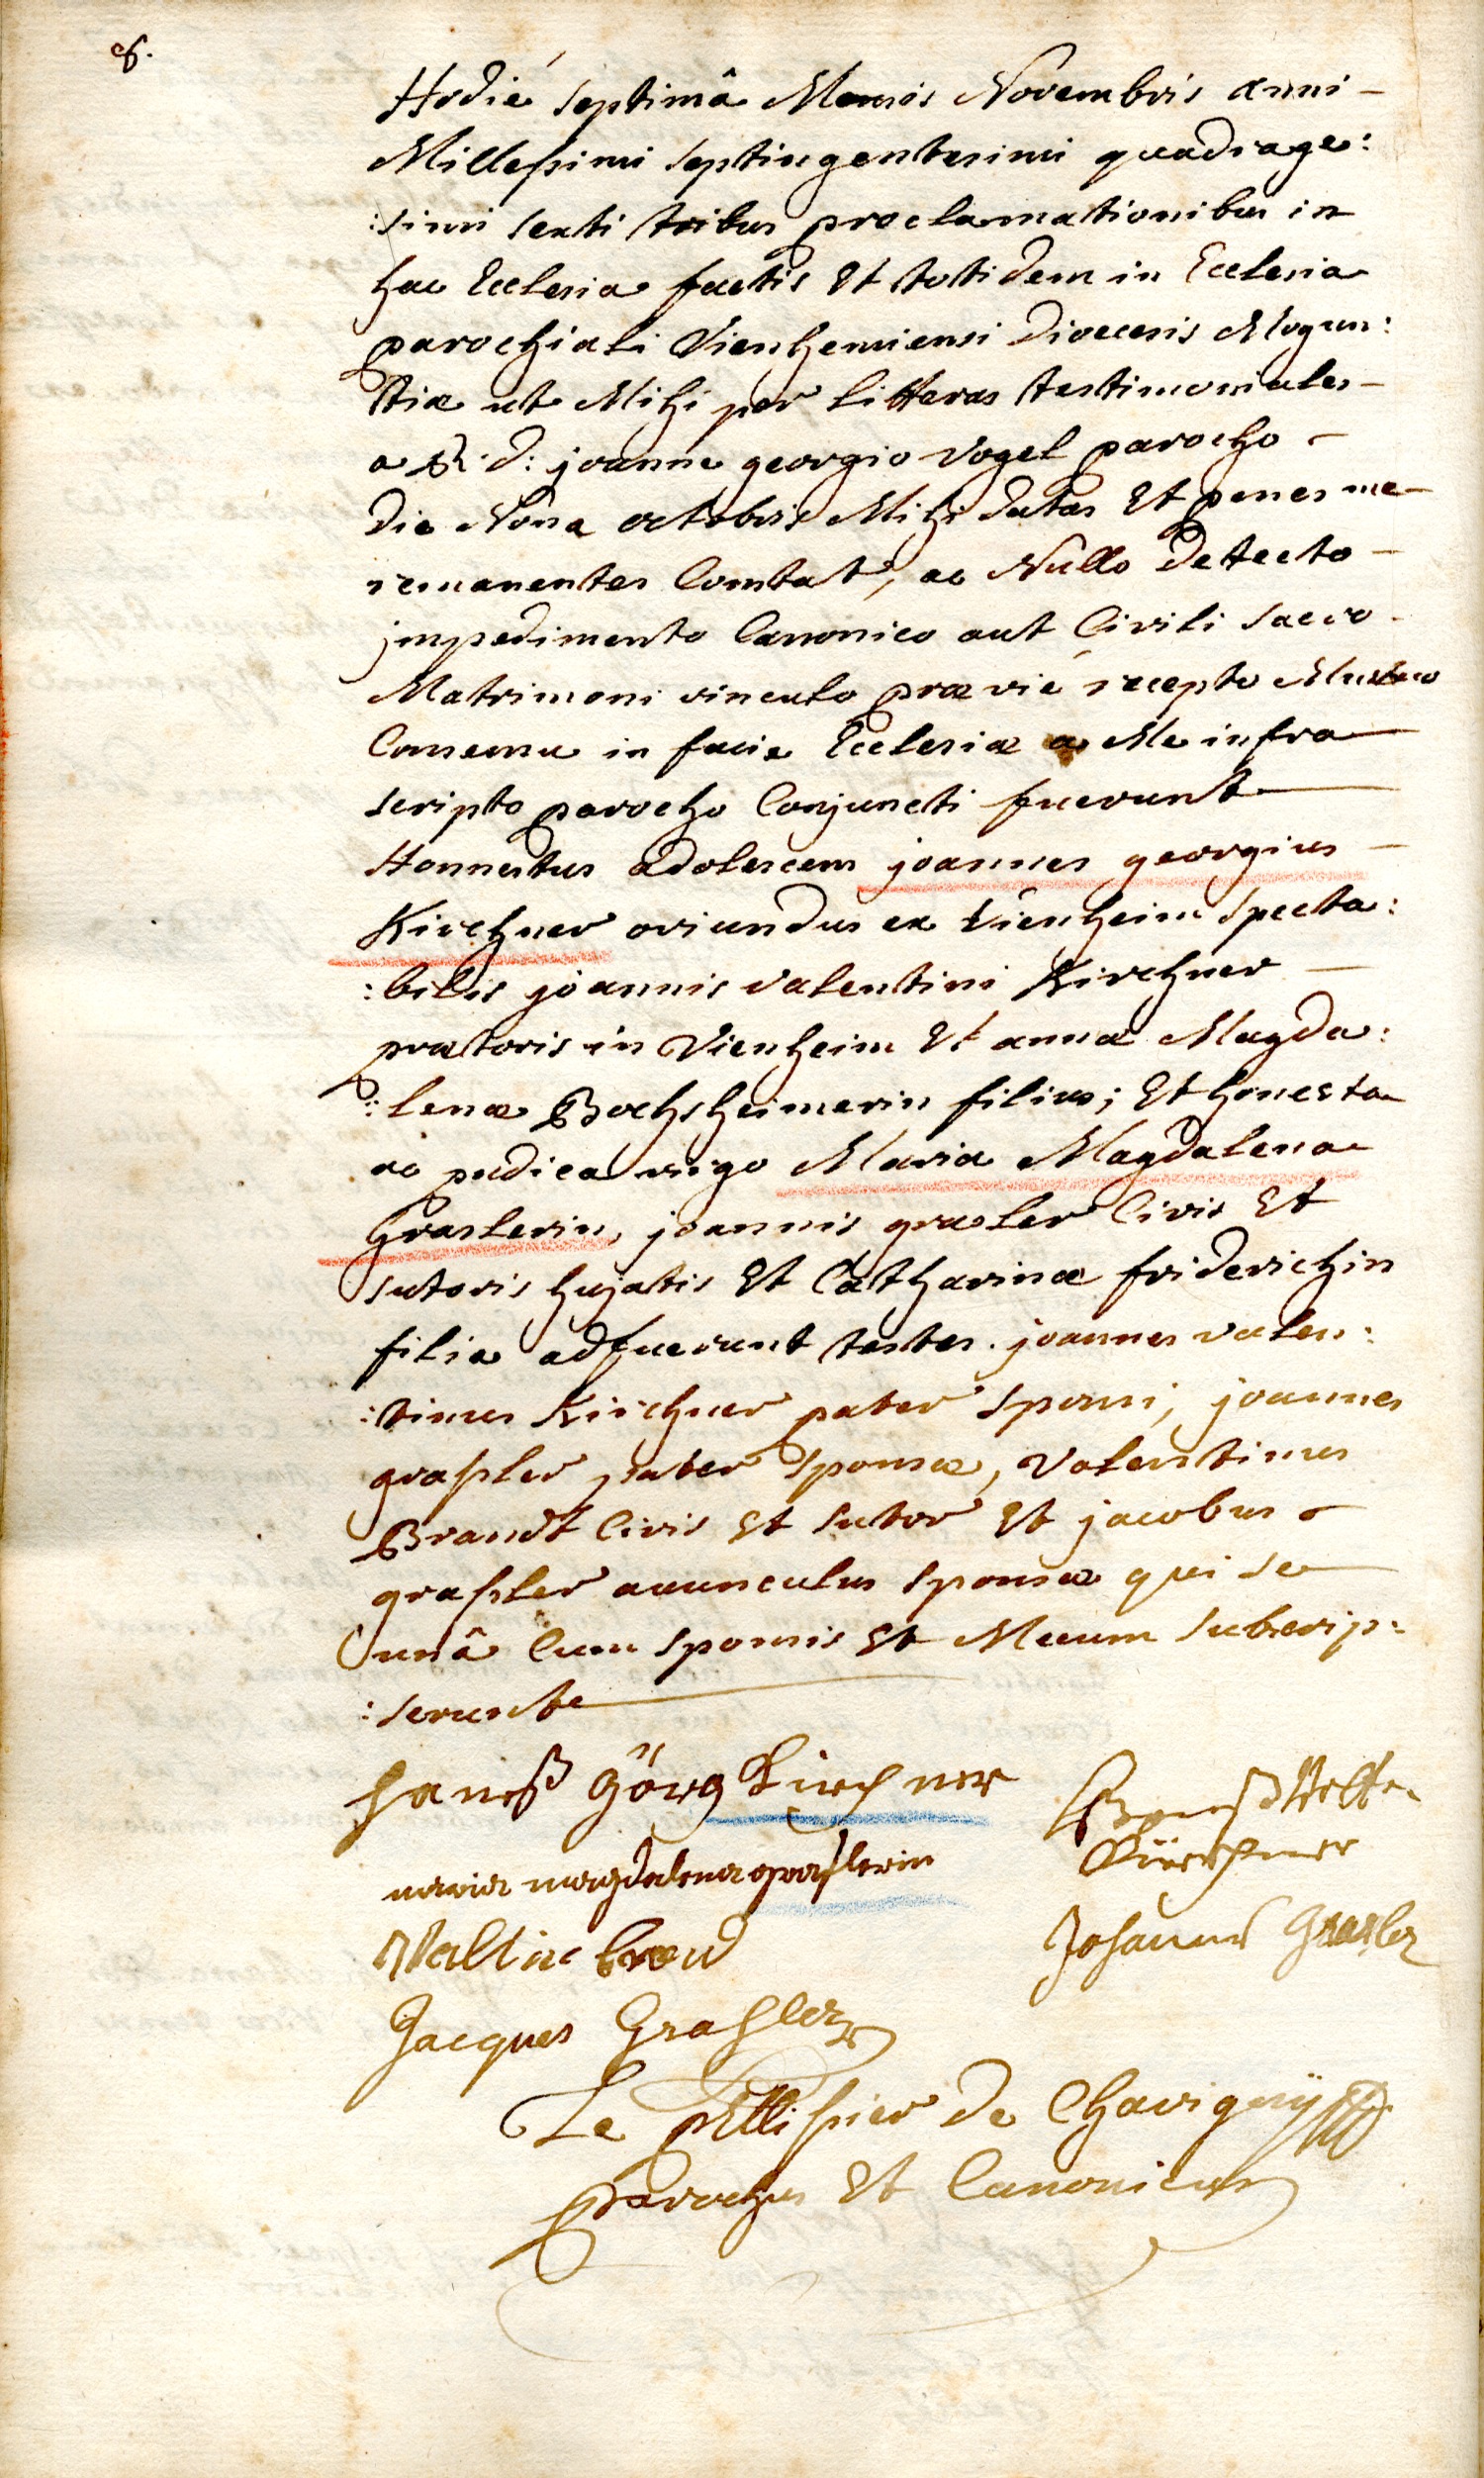 8.
Hodié septimâ Mensis Novembris anni –
Millessimi septingentesimi quadrage:
:simi sexti tribus proclamationibus in
hac Ecclesia factis Et totidem in Ecclesia
parochiali Vienhemiensi Dioecesis Mogun:
tiæ ut Mihi per litteras testimoniales –
a R: d: joanne georgio Vogel parocho –
die Nona octobris Mihi datas Et penes me –
remanentes Constat, ac Nullo detecto –
jmpedimento Canonico aut Civili sacro
Matrimoni vinculo prævié recepto Mutuo
Consensu in facie Ecclesiæ a Me infra
scripto parocho Conjuncti fuerunt
Honnestus adolescens joannes georgius –
Kirchner oriundus ex Vienheim Specta:
:bilis joannis valentini Kirchner –
prætoris in Vienheim Et annæ Magda:
:lenæ Bochsheimerin filius; Et honesta
ac pudica virgo Maria Magdalena
Graslerin, joannis grasler Civis Et
sutoris hujatis Et Catharinæ friderichin
filia adfuerunt testes. joannes valen:
:tinus Kirchner pater sponsi, joannes
grassler pater sponsæ, Valentinus
Brandt Civis Et sutor Et jacobus –
grassler avunculus sponsæ qui se
unâ Cum sponsis Et Mecum subscrip:
:serunt
hanß Görg Kirchner
maria magdalena graßlerin
Kürchner
Johannes Grasler
Jacques Graßler
Le pellissier de Chavigny
Parochus Et Canonicus